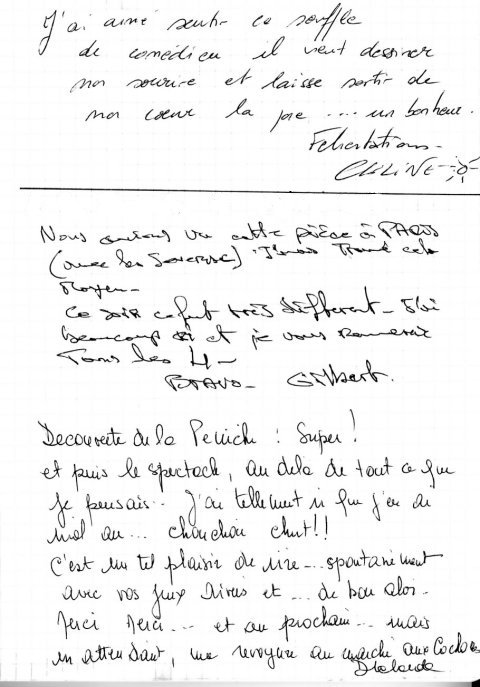 J'ai aimé sentir ce souffle
de comédien il vient dessiner
mon sourire et laisse sortir de
mon coeur la joie .... un bonheur.
Felicitations -
CELINE
Nous avions vu cette pièce à PARIS
(avec les ) J'avais Trouvé cela
Moyen -
Ce soir ce fut très différent - J'ai
beaucoup ri et je vous remercie
Tous les 4 -
BRAVO - Gilbert.
Decouverte de la Peniche : Super !
et puis le spectacle, au dela de tout ce que
je pensais .. J'ai tellement ri que j'en ai
mal au ... chouchou chut !!
C'est un tel plaisir de rire ... spontanément
avec vos jeux divers et ... de bon aloi.
Merci Merci ... et au prochain ... mais
en attendant, me revoyure au marché aux